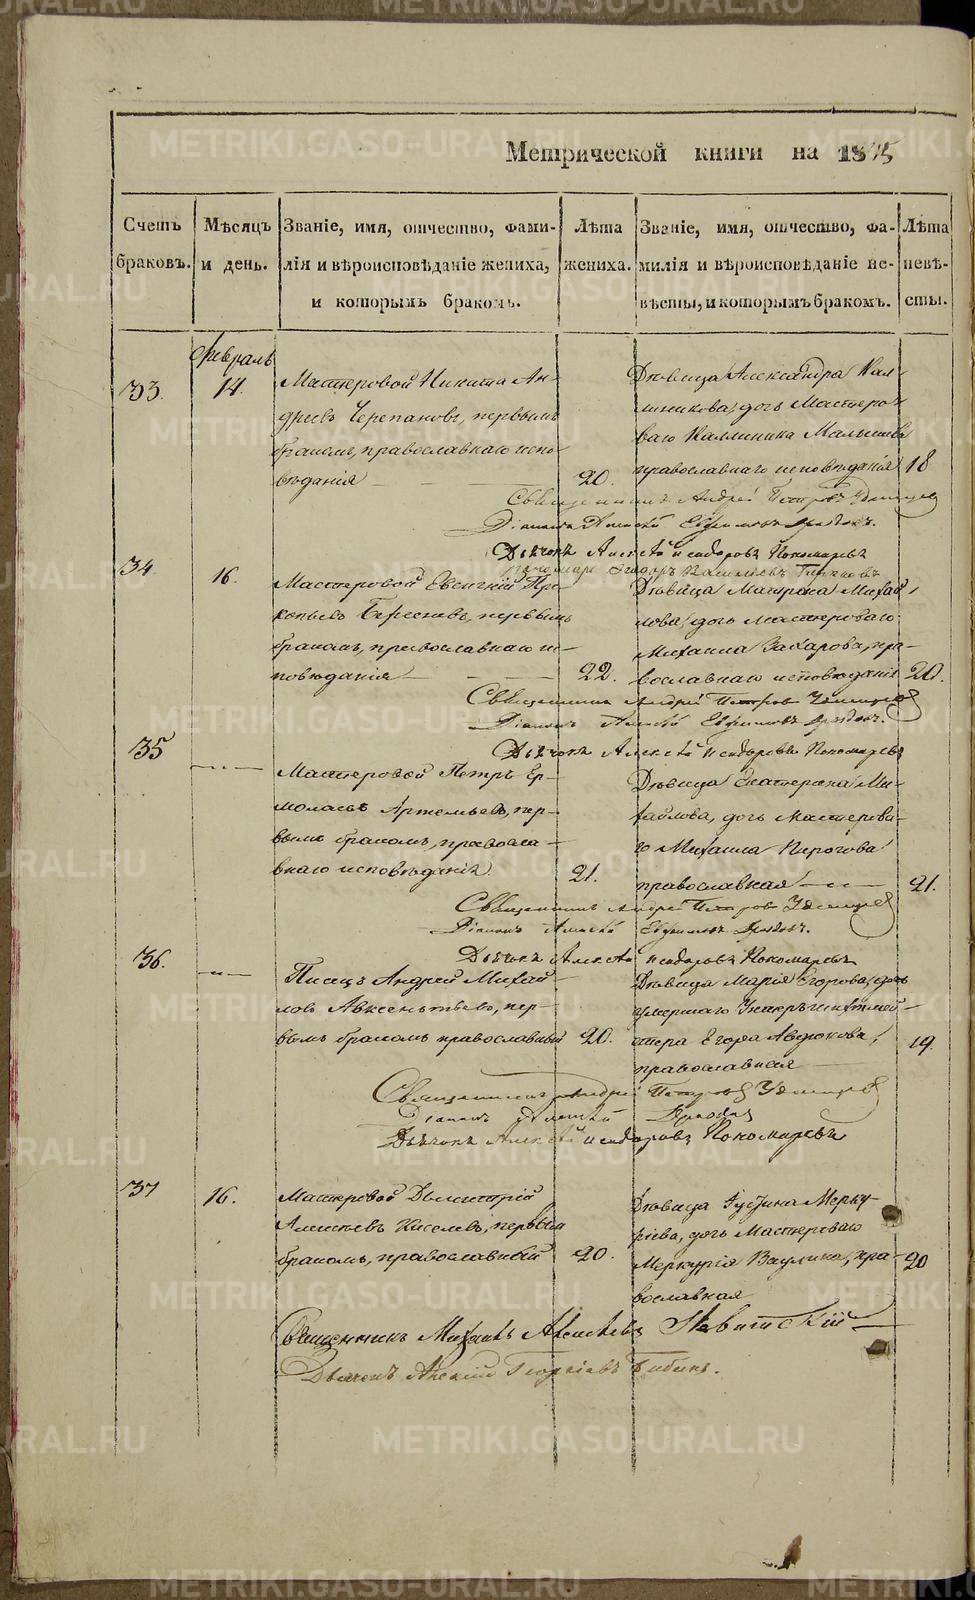 Метрической книги на 1845
Счетъ браковъ.
Мѣсяцъ и день.
Званіе, имя, отчество, фами-
лія и вѣроисповѣданіе жениха,
и которымъ бракомъ.
Лѣта жениха.
Званіе, имя, отчество, фа-
милія и вѣроисповѣданіе не-
вѣсты, и которымъ бракомъ.
Лѣта невѣ-
сты.
Февраль
33.
14.
Мастеровой Никита Ан-
дреевъ Черепановъ, первымъ
бракомъ, православнаго испо-
вѣданія
20.
Дѣвица Александра Кал-
линикова, дочь Мастеро-
ваго Каллиника Малышева
православнаго исповѣданія
18
Священникъ Андрей Петровъ Удинцев
Діаконъ Алексѣй Евфимовъ
Дьячокъ Алексѣй Исидоровъ Пономаревъ
34
16.
Мастеровой Евсигній Про-
копьевъ первымъ
бракомъ, православнаго ис-
повѣданія
22.
Дѣвица Матрона Михай-
лова, дочь мастероваго
Михаила Захарова, пра-
вославнаго исповѣданія
20.
Священникъ Андрей Петров Удинцев
Діаконъ Алексѣй Евфимовъ
Дьячокъ Алексѣй Исидоровъ Пономаревъ
35
Мастеровой Петръ Ер-
молаевъ Артемьевъ, пер-
вымъ бракомъ, правосла-
внаго исповѣданія
21.
Дѣвица Екатерина Ми-
хайлова, дочь Мастерова-
го Михаила Пирогова
православная
21.
Священникъ Андрей Петров Удинцев
Діаконъ Алексѣй Евфимовъ
Дьячокъ Алексѣй Исидоровъ Пономаревъ
36.
Писецъ Андрей Михай-
ловъ Авксентьевъ, пер-
вымъ бракомъ православный
20.
Дѣвица Марія Егорова, дочь
умершаго Унтеръ шихтмей-
стера Егора Авдюкова,
православная
19.
Священникъ Андрей Петров Удинцев
Діаконъ Алексѣй
Дьячокъ Алексѣй Исидоровъ Пономаревъ
37
16.
Мастеровой Дьмитрій
Алексѣевъ Киселевъ, первым
бракомъ, православный
20.
Дѣвица Іустина Мерку-
ріева, дочь Мастероваго
Меркурія Ваулина, пра-
вославная
20
Священникъ Михаилъ Алексѣевъ Левитскій
Дьячекъ Алексій Георгіевъ Бибинъ.
METRIKI.GASO-URAL.RU